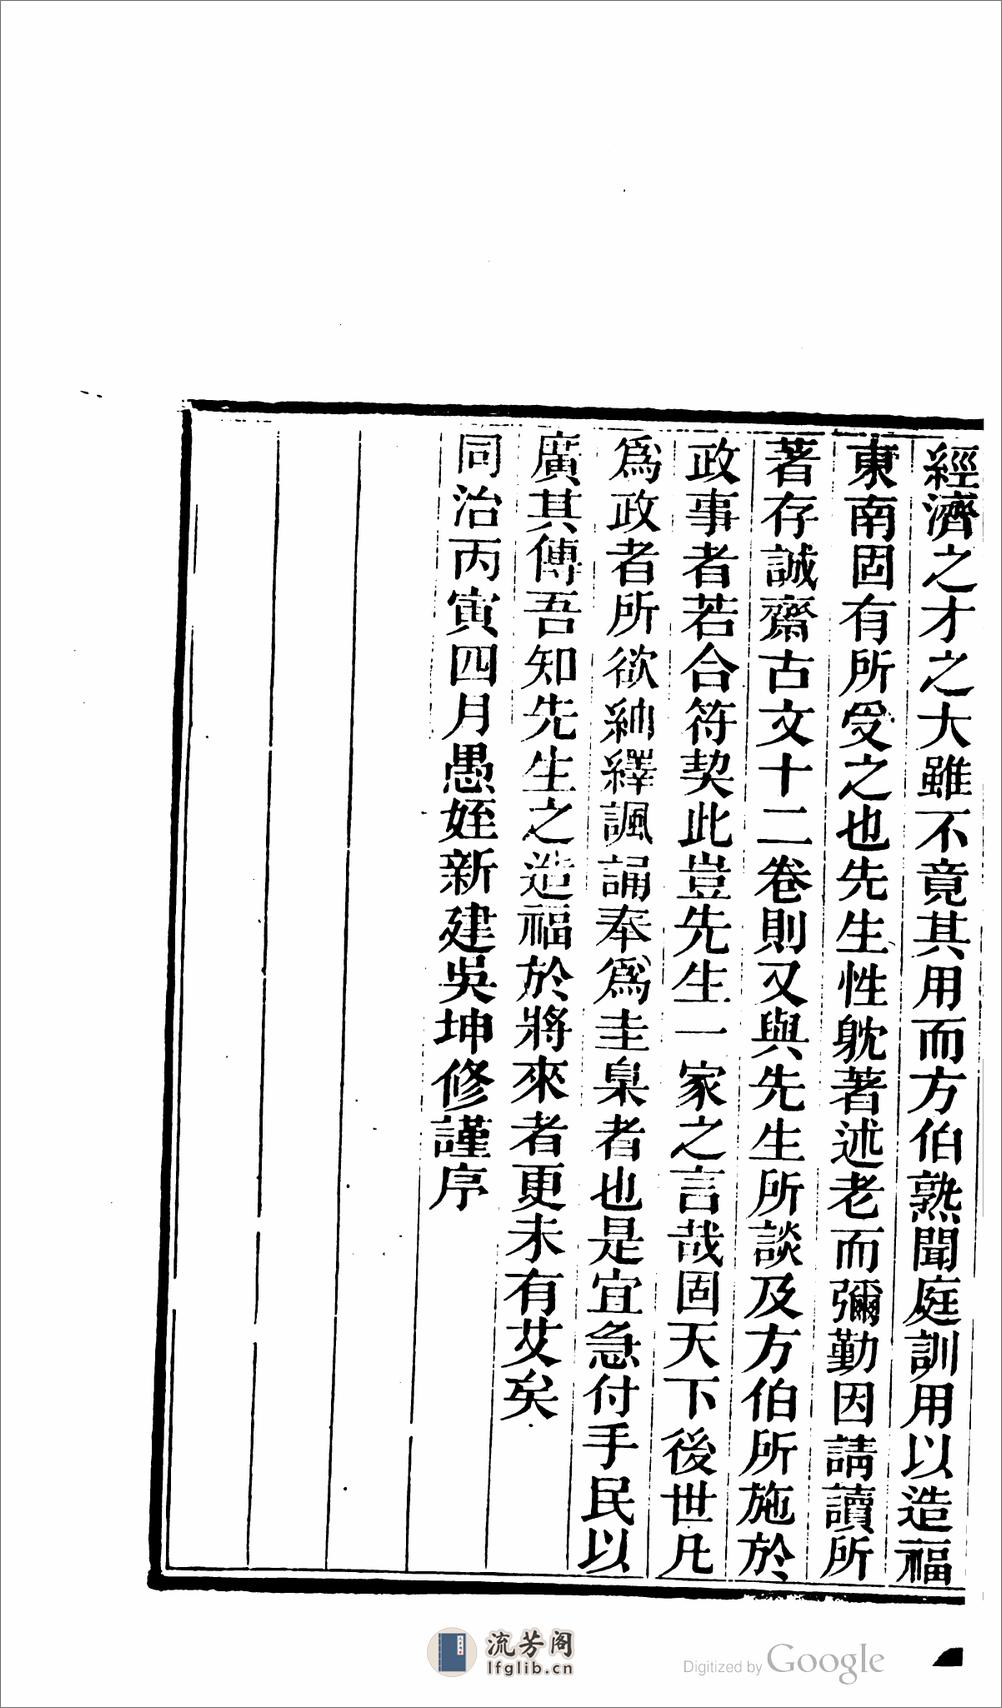 經濟之才之大雖不竟其用而方伯熟聞庭訓用以造福
東南固有所受之也先生性躭著述老而彌勤因請讀所
著存誠齋古文十二卷則又與先生所談及方伯所施於
政事者若合符契此豈先生一家之言哉固天下後世凡
爲政者所欲紬繹諷誦奉爲圭臬者也是宜急付手民以
廣其傳吾知先生之造福於將來者更未有艾矣
同治丙寅四月愚姪新建吳坤修謹序
流芳阁
lfglib.cn
Digitized by Google